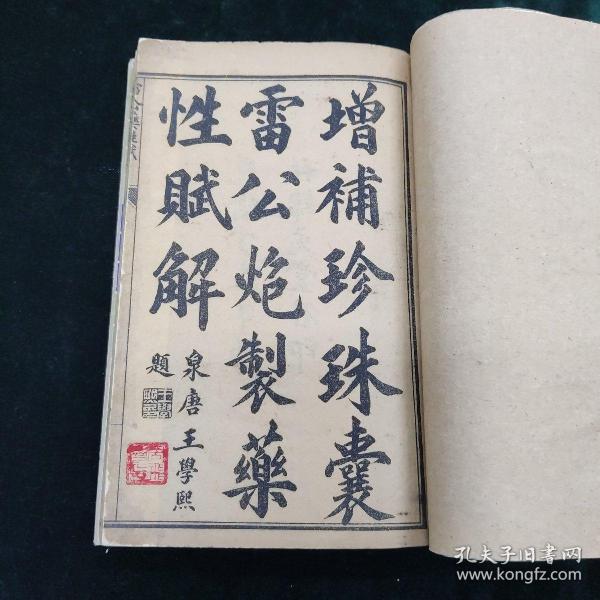 增補珍珠囊
雷公炮製藥
性賦解
泉唐王學熙
題
孔夫子旧书网
www.kongfz.com